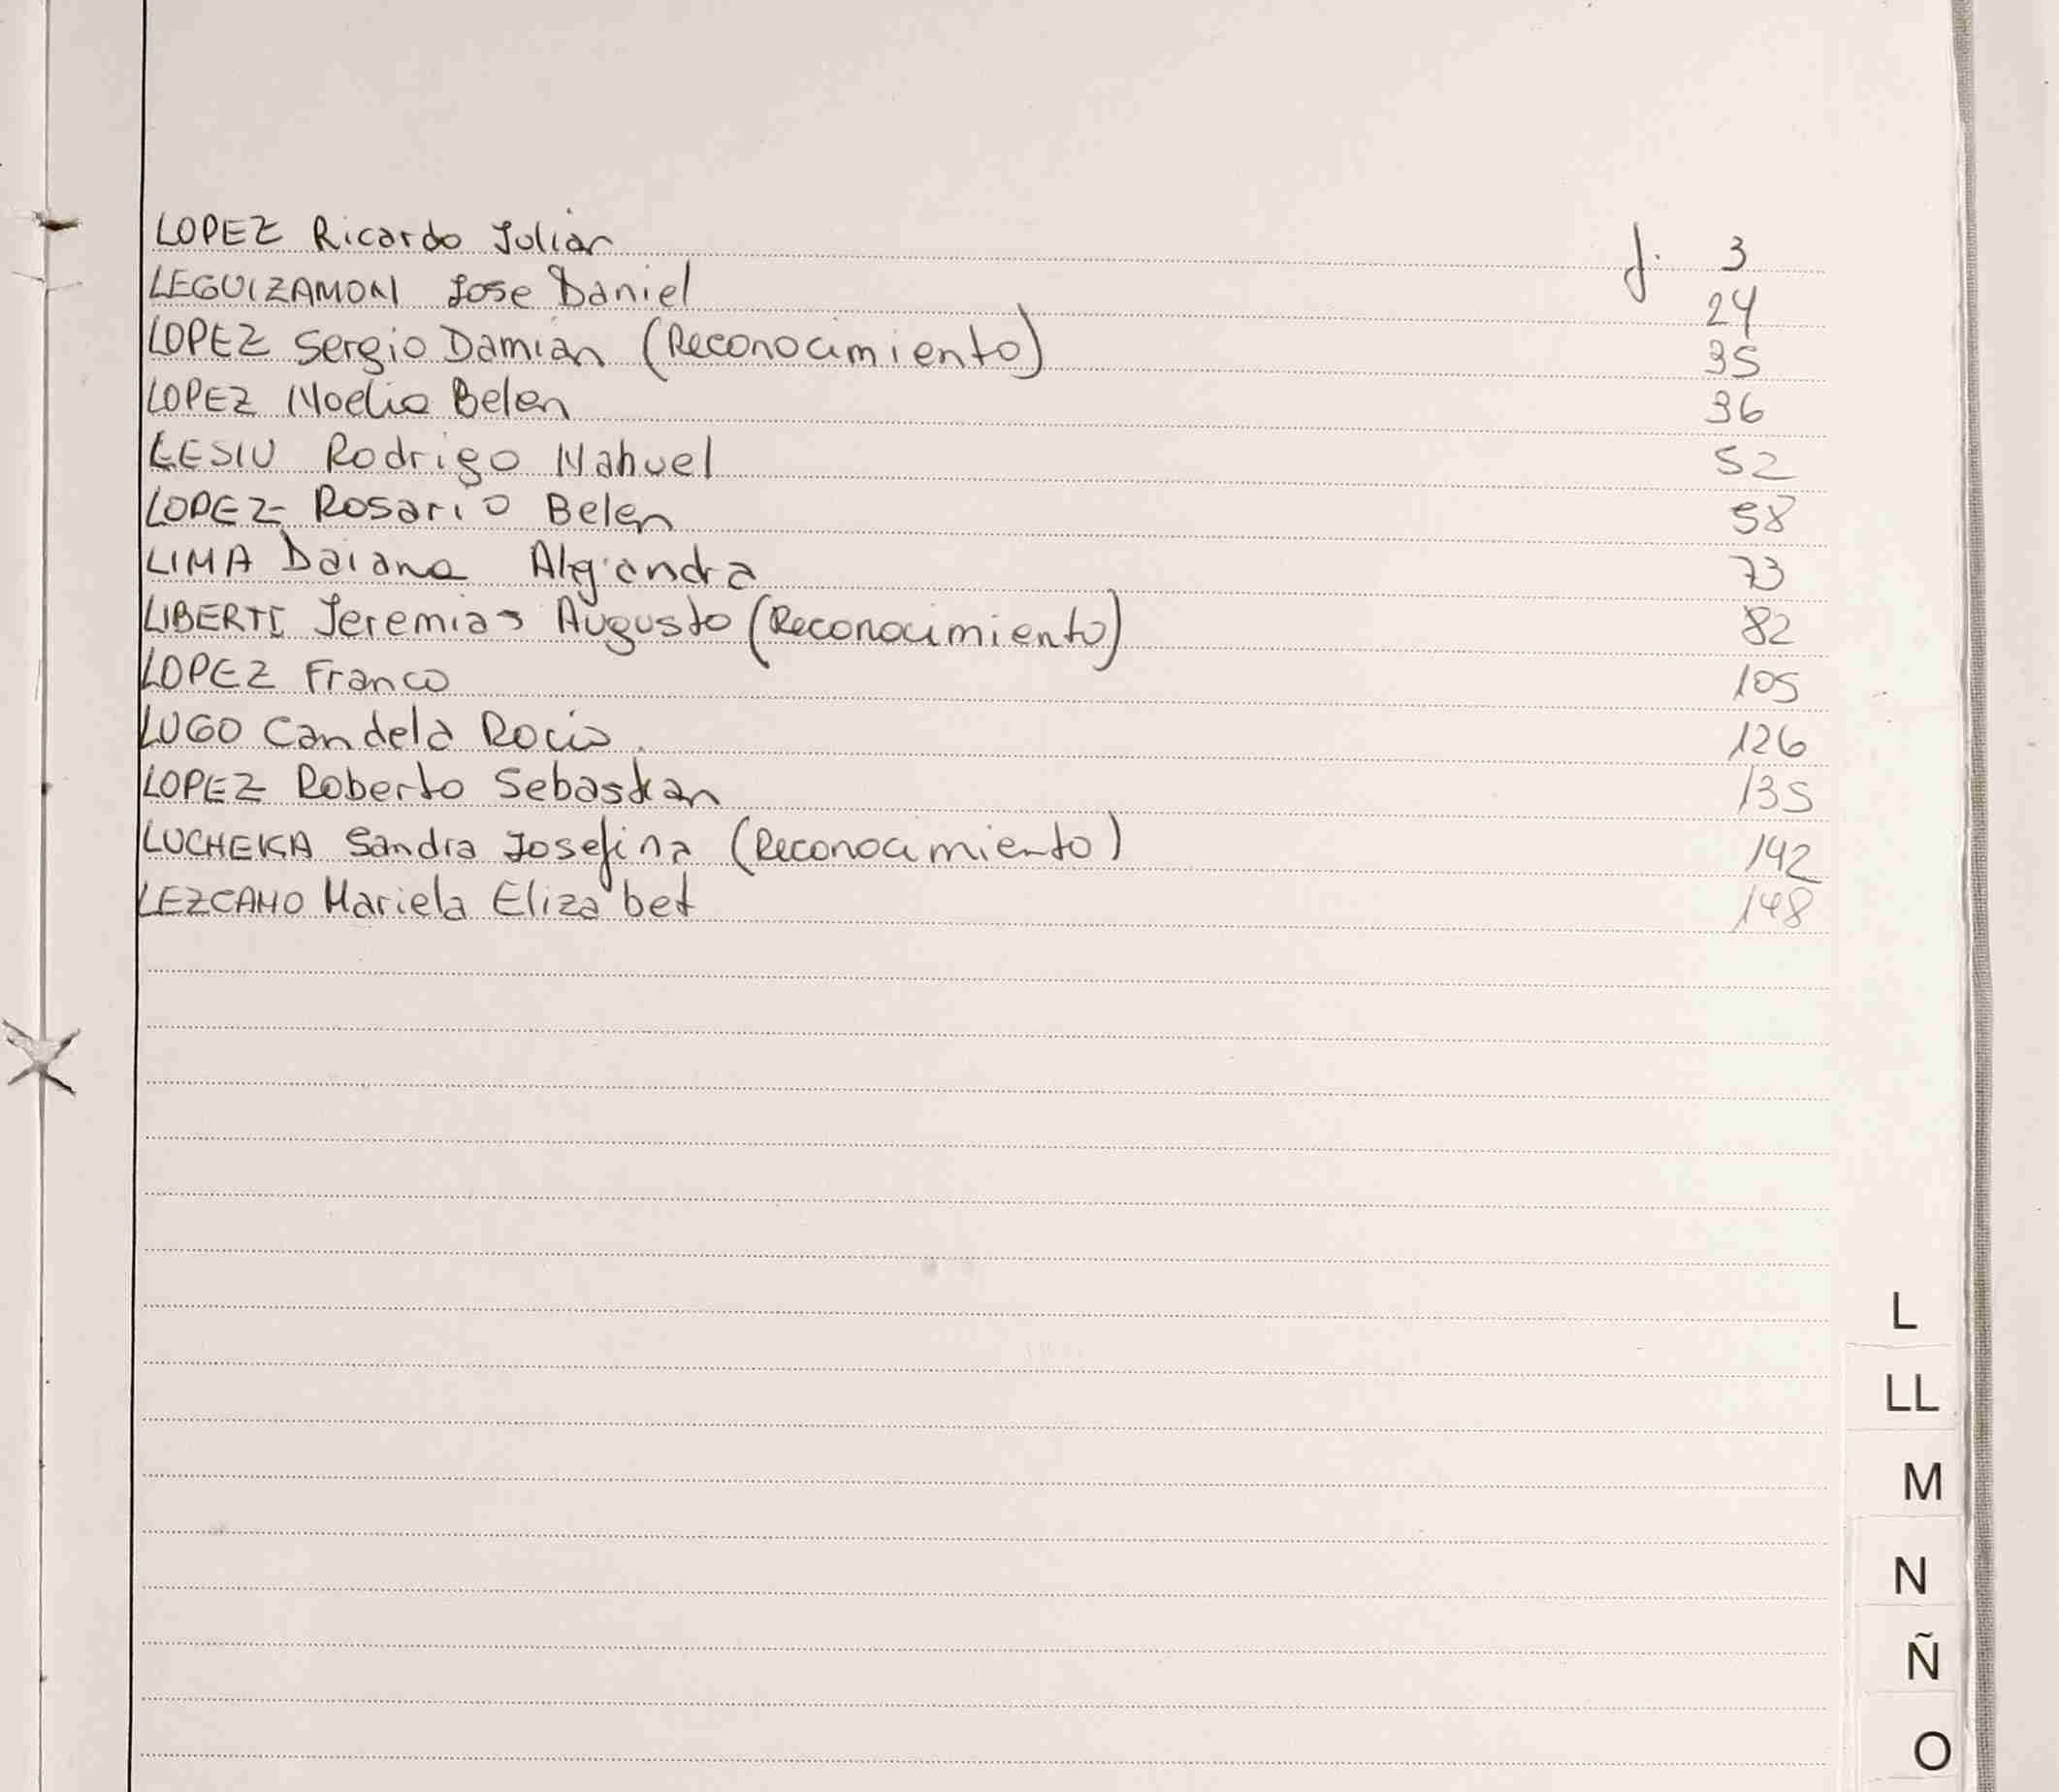 LOPEZ Ricardo Julian f. 3
LEGUIZAMON Jose Daniel 24
LOPEZ Sergio Damian (Reconocimiento) 35
LOPEZ Noelia Belen 36
LESIU Rodrigo Nahuel 52
LOPEZ Rosario Belen 58
LIMA Daiana Alejandra 73
LIBERTI Jeremias Augusto (Reconocimiento) 82
LOPEZ Franco 105
LUGO Candela Rocio. 126
LOPEZ Roberto Sebastian 135
LUCHEKA Sandra Josefina (Reconocimiento) 142
LEZCANO Mariela Elizabet 148
L
LL
M
N
Ñ
O